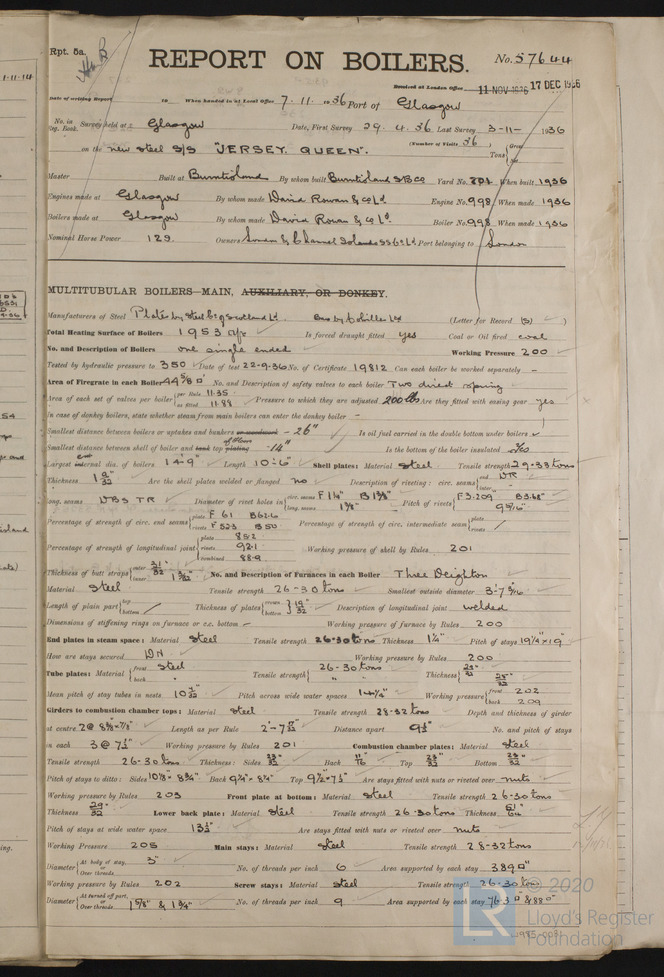 Rpt. 5a.
REPORT ON BOILERS.
No. 57644
Received at London Office 11 NOV 1936 17 DEC 1936
Date of writing Report 19 When handed in at Local Office 7.11.1936 Port of Glasgow
No. in Reg. Book. Survey held at Glasgow Date, First Survey 29.4.36 Last Survey 3-11- 1936
on the new steel S/S "JERSEY QUEEN". (Number of Visits 56) Tons {Gross Net
Master Built at Burntisland By whom built Burntisland S.B.Co Yard No. 201 When built 1936
Engines made at Glasgow By whom made David Rowan & Co Ld Engine No. 998 When made 1936
Boilers made at Glasgow By whom made David Rowan & Co Ld Boiler No. 998 When made 1936
Nominal Horse Power 129. Owners London & Channel Islands SS Co Ld Port belonging to London
MULTITUBULAR BOILERS MAIN, AUXILIARY, OR DONKEY.
Manufacturers of Steel Plates by Steel Co of Scotland Ld. Bars by Colvilles Ld (Letter for Record (S) )
Total Heating Surface of Boilers 1953 Is forced draught fitted yes Coal or Oil fired coal
No. and Description of Boilers one single ended Working Pressure 200
Tested by hydraulic pressure to 350 Date of test 22-9-36 No. of Certificate 19812 Can each boiler be worked separately -
Area of Firegrate in each Boiler 44 5/8 □' No. and Description of safety valves to each boiler Two direct spring
Area of each set of valves per boiler {per Rule 11.35 as fitted 11.88 Pressure to which they are adjusted 200 lbs Are they fitted with easing gear yes
In case of donkey boilers, state whether steam from main boilers can enter the donkey boiler -
Smallest distance between boilers or uptakes and bunkers or woodwork - 26" Is oil fuel carried in the double bottom under boilers
Smallest distance between shell of boiler and tank top plating - 14" Is the bottom of the boiler insulated
Largest internal dia. of boilers 14-9" Length 10-6" Shell plates: Material steel Tensile strength 29-33 tons
Thickness Are the shell plates welded or flanged no Description of riveting: circ. seams {end DR inter. -
long. seams DBS TR Diameter of rivet holes in {circ. seams F 1 1/4" B 1 3/8" long. seams 1 3/8" Pitch of rivets {F 3.209 B 3.68" 9 5/16"
Percentage of strength of circ. end seams {plate F 61 B 62.6 rivets F 52.3 B 50 Percentage of strength of circ. intermediate seam {plate rivets
Percentage of strength of longitudinal joint {plate 85.2 rivets 92.1 combined 88.9 Working pressure of shell by Rules 201
Thickness of butt straps {outer 31/32 inner 1 3/32 No. and Description of Furnaces in each Boiler Three Deighton
Material steel Tensile strength 26-30 tons Smallest outside diameter 3'-7 9/16"
Length of plain part {top bottom Thickness of plates {crown bottom} 19/32 Description of longitudinal joint welded
Dimensions of stiffening rings on furnace or c.c. bottom - Working pressure of furnace by Rules 200
End plates in steam space: Material steel Tensile strength 26-30 tons Thickness 1 1/4" Pitch of stays 19 1/4 x 19"
How are stays secured DN Working pressure by Rules 200
Tube plates: Material {front steel back " Tensile strength {26-30 tons " Thickness
Mean pitch of stay tubes in nests Pitch across wide water spaces 14 1/4" Working pressure {front 202 back 209
Girders to combustion chamber tops: Material steel Tensile strength 28-32 tons Depth and thickness of girder
at centre Length as per Rule Distance apart 9 1/2" No. and pitch of stays
in each 3 @ 7 1/2" Working pressure by Rules 201 Combustion chamber plates: Material steel
Tensile strength 26-30 tons Thickness: Sides 23/32 Back 11/16 Top 23/32 Bottom 23/32
Pitch of stays to ditto: Sides 10 1/8" 8 3/4" Back 9 1/4" 8 1/4" Top 9 1/2" x 7 1/2" Are stays fitted with nuts or riveted over nuts
Working pressure by Rules 203 Front plate at bottom: Material steel Tensile strength 26-30 tons
Thickness 29/32 Lower back plate: Material steel Tensile strength 26-30 tons Thickness
Pitch of stays at wide water space 13 1/2" Are stays fitted with nuts or riveted over nuts
Working Pressure 205 Main stays: Material steel Tensile strength 28-32 tons
Diameter {At body of stay, or Over threads 3" No. of threads per inch 6 Area supported by each stay 389 □"
Working pressure by Rules 202 Screw stays: Material steel Tensile strength 26-30 tons
Diameter {At turned off part, or Over threads 1 5/8" & 1 3/4" No. of threads per inch 9 Area supported by each stay 76.3 □ & 88 □"
© 2020
LR
Lloyd's Register
Foundation